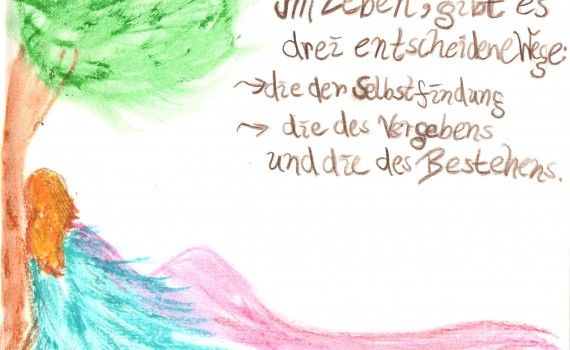 Im Leben, gibt es
drei entscheidene Wege:
→ die der Selbstfindung
→ die des Vergebens
und die des Bestehens.